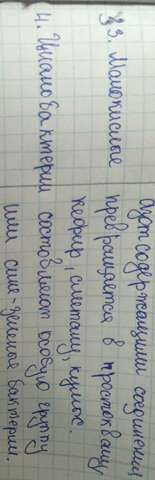 азотсодержащими соединения
3. Молокислые превращается в простоквашу
кефир, сметану, кумыс.
4. Цианобактерии составляют особую группу
или сине-зелёные бактерии.